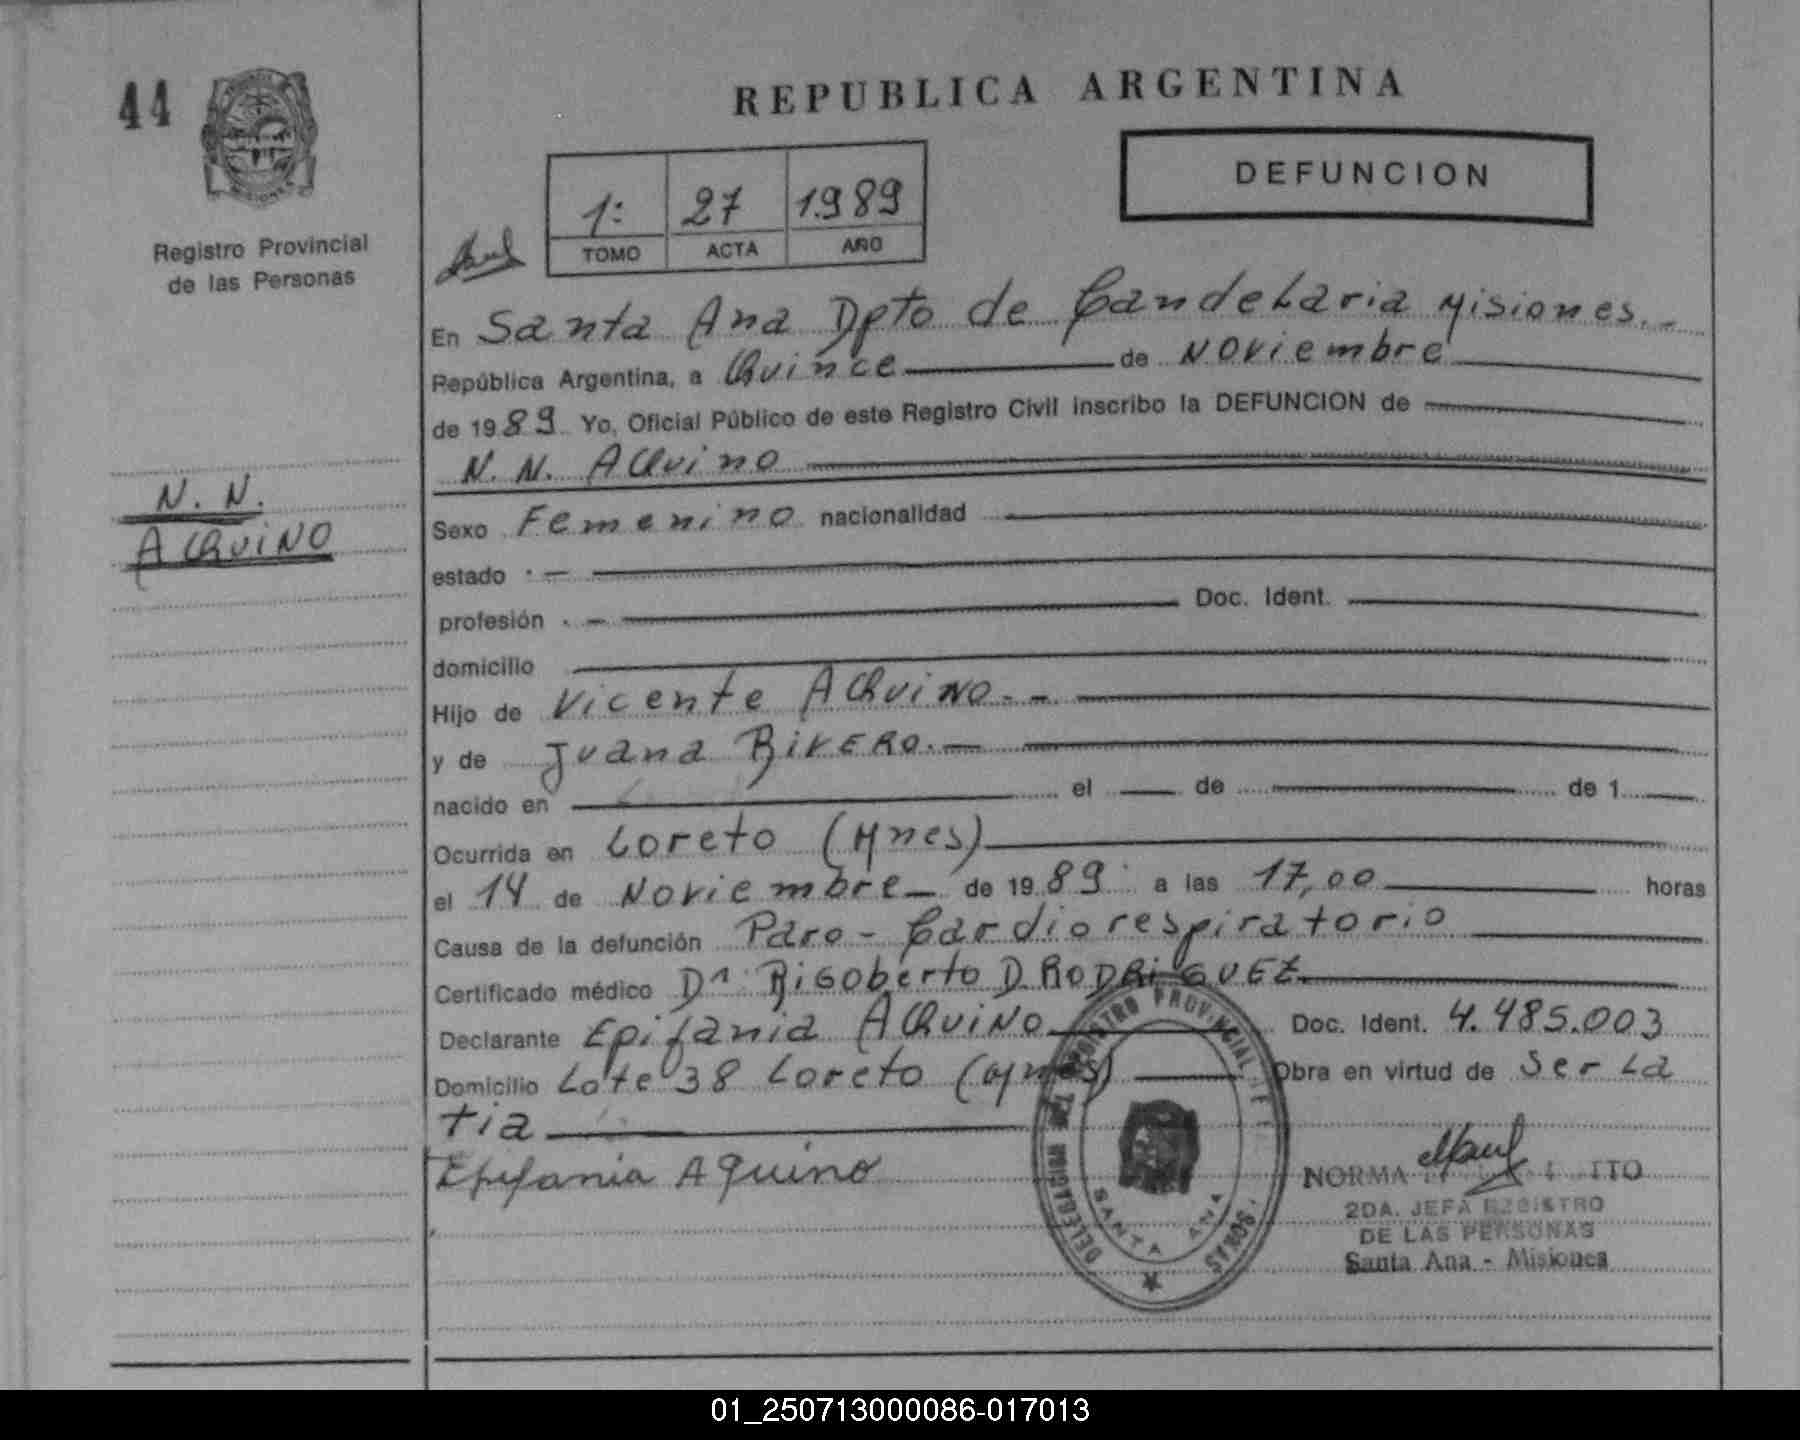 44
REPUBLICA ARGENTINA
DEFUNCION
1: 27 1.989
TOMO ACTA AÑO
Registro Provincial
de las Personas
MISIONES
En Santa Ana Dpto de Candelaria Misiones.-
República Argentina, a Quince de Noviembre
de 1989 Yo, Oficial Público de este Registro Civil inscribo la DEFUNCION de
N. N. AQuino
N. N.
AQuiNO
Sexo Femenino nacionalidad
estado
profesión Doc. Ident.
domicilio
Hijo de Vicente AQuiNO.-
y de Juana RiVERO.-
nacido en el de de 1
Ocurrida en Loreto (Mnes)
el 14 de Noviembre de 1989 a las 17,00 horas
Causa de la defunción Paro-Cardiorespiratorio
Certificado médico Dr. Rigoberto D. RODRiGUEZ
Declarante Epifania AQuiNo Doc. Ident. 4.485.003
Domicilio Lote 38 Loreto (Mnes) Obra en virtud de Ser La
tia
Epifania Aquino
DELEGACION REGISTRO PROVINCIAL DE
SANTA ANA
NORMA
2DA. JEFA REGISTRO
DE LAS PERSONAS
Santa Ana - Misiones
01_250713000086-017013